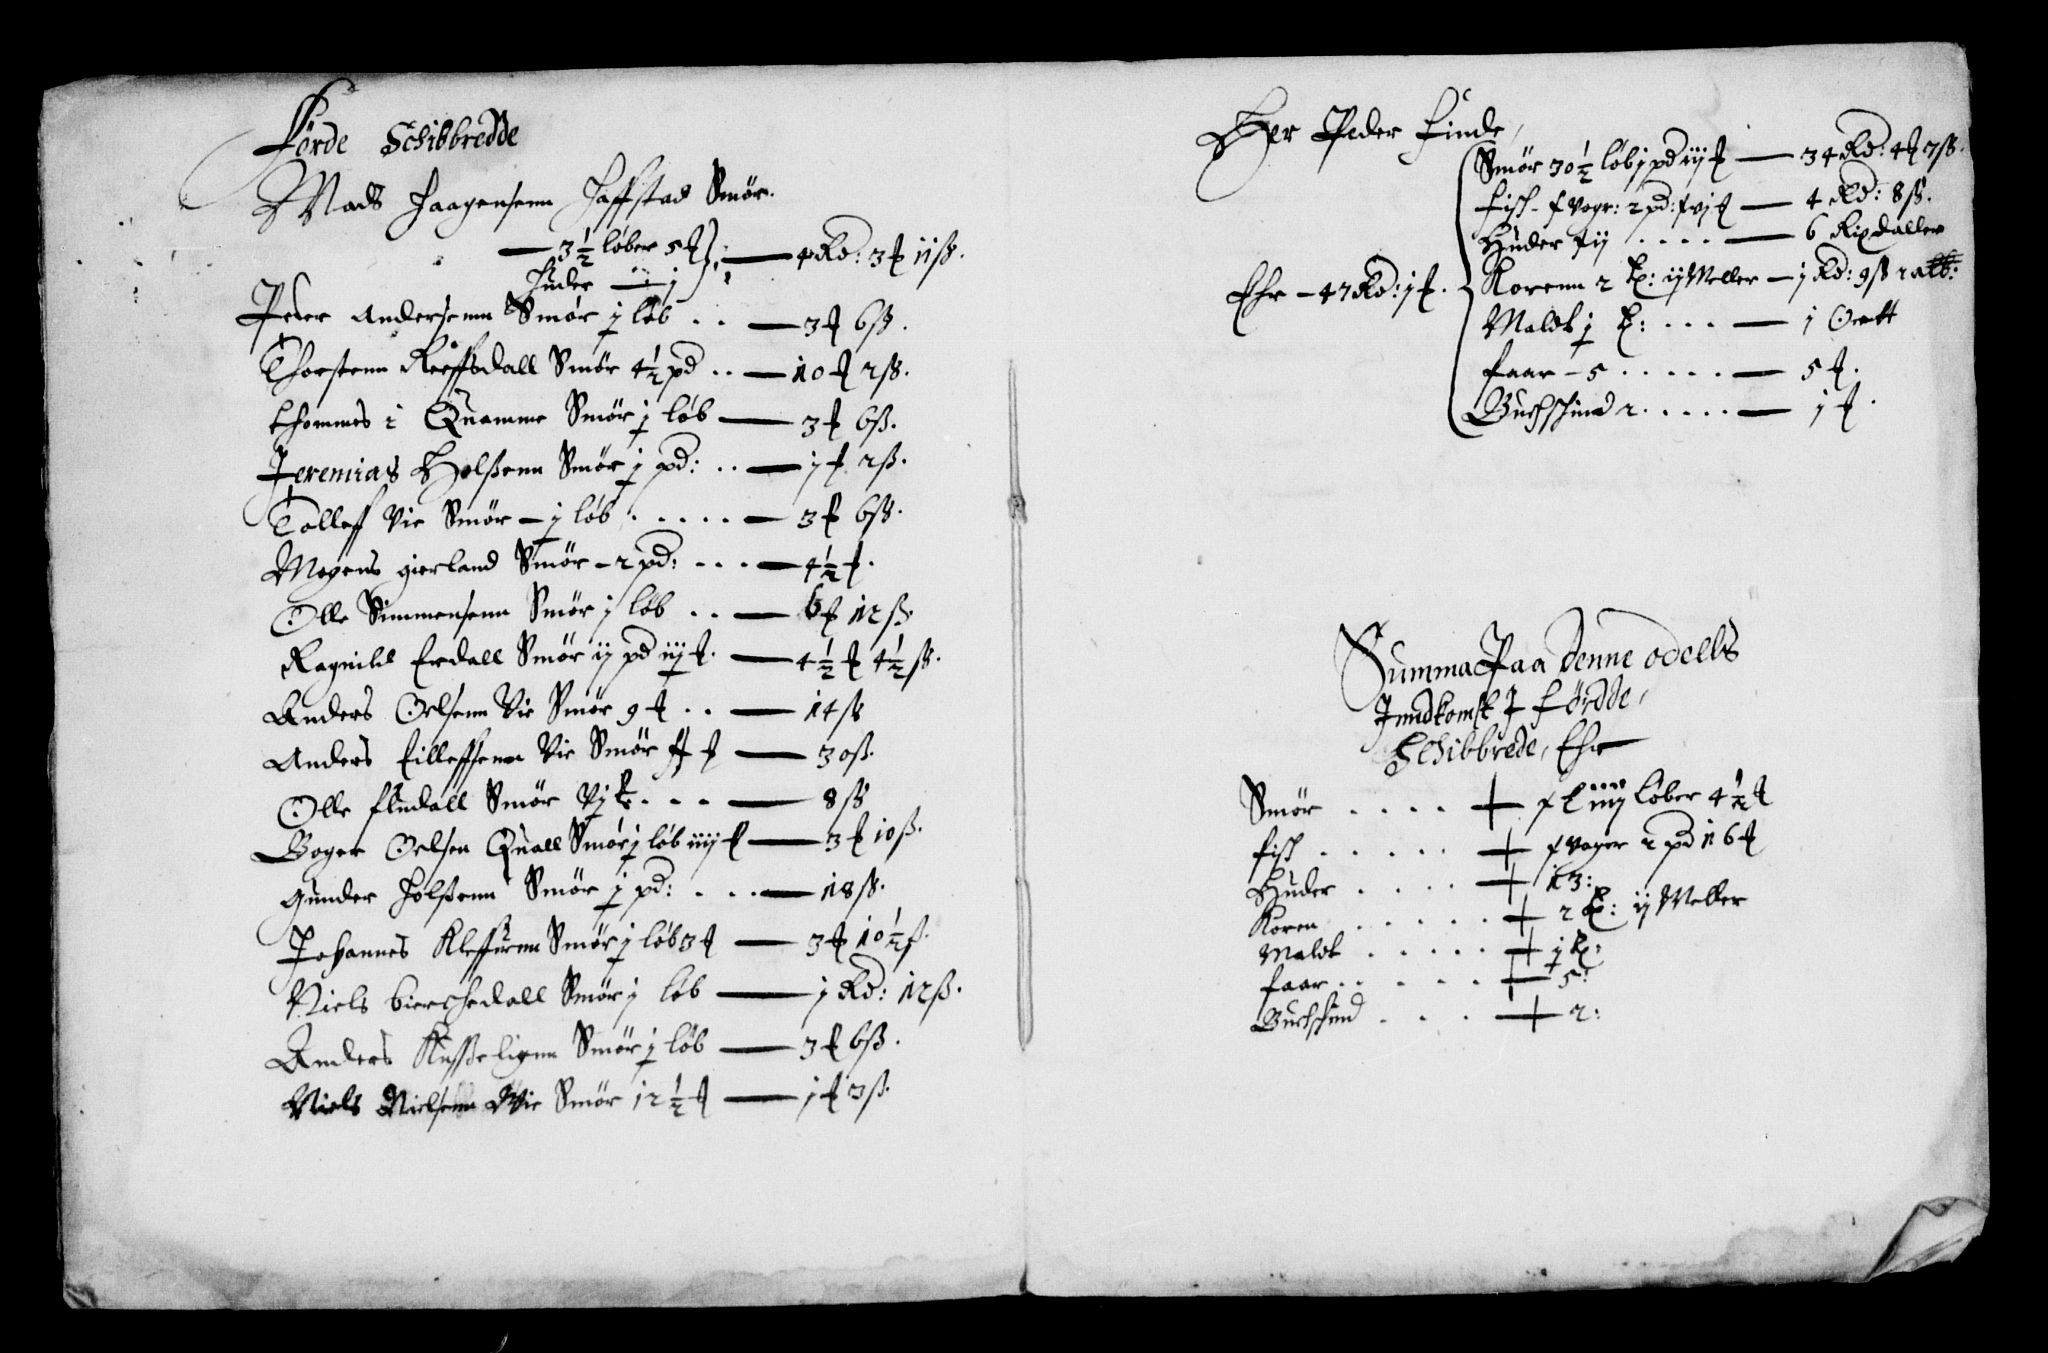 Förde Schibbredde
Mads Haagensenn Haffstad Smör.
— 3½ løber 5 ₰ — 4 Rd: 3 ₰ 11 ß.
Huder — j
Peder Andersenn Smör j løb . . — 3 ₰ 6 ß.
Thorstenn Reffsdall Smör 4½ pd . . — 10 ₰ 2 ß.
Thommes i Quamme Smör j løb — 3 ₰ 6 ß.
Jeremias Holßenn Smör j pd: . . — j ₰ 2 ß.
Tolleff Vie Smör — j løb . . . . . — 3 ₰ 6 ß.
Mogens gierland Smör — 2 pd: . . . — 4½ ₰.
Olle Simmensenn Smör j løb . . — 12 ß.
Ragnild Erdall Smör ij pd iij ₰. — 4½ ₰ 4½ ß.
Anders Oelsenn Vie Smör 9 ₰ . . — 14 ß
Anders Eilleffsenn Vie Smör — 30 ß.
Olle flndall Smör vj . . . — 8 ß
Boger Oelsen Quall Smör j løb iiij ₰ — 3 ₰ 10 ß.
Gunder Holßenn Smör j pd: . . . — 18 ß.
Johannes Kleffuenn Smör j løb 3 ₰ — 3 ₰ 10½ ß.
Niels bierchedall Smör j løb — j Rd: 12 ß.
Anders Kußeligenn Smör j løb — 3 ₰ 6 ß.
Niels Nielsenn Vie Smör 12½ ₰ — j ₰ 3 ß.
Her Peder Finde,
Smör 30½ løb j pd iij ₰ — 34 Rd: 4 ₰ 7 ß.
Fisch - f Vogr: 2 pd: fvj ₰ — 4 Rd: 8 ß.
Huder fij . . . . — 6 Rixdaller
Ehr — 47 Rd: j ₰. Korenn 2 ij Meller — j Rd: 9 ß 2 alb:
Maldt j . . . — 1 Ortt
faar — 5 . . . . . — 5 ₰.
Buchschind 2 . . . . . — j ₰.
Summa Paa denne odells
Jnndkomst J Fördde,
Schibbrede, Ehr
Smör . . . . f l iiij Løber 4½ ₰
fisch . . . . . f Voger 2 pd 16 ₰
Huder . . . . 13:
Koren . . . . . 2 ij Meller
Maldt . . . . . j
faar . . . . . . 5:
Buchschind . . . 2: